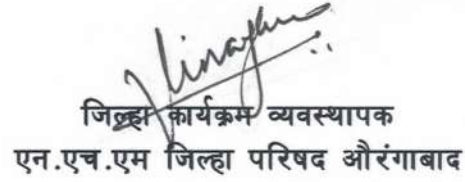 जिल्हा कार्यक्रम व्यवस्थापक
एन.एच.एम जिल्हा परिषद औरंगाबाद